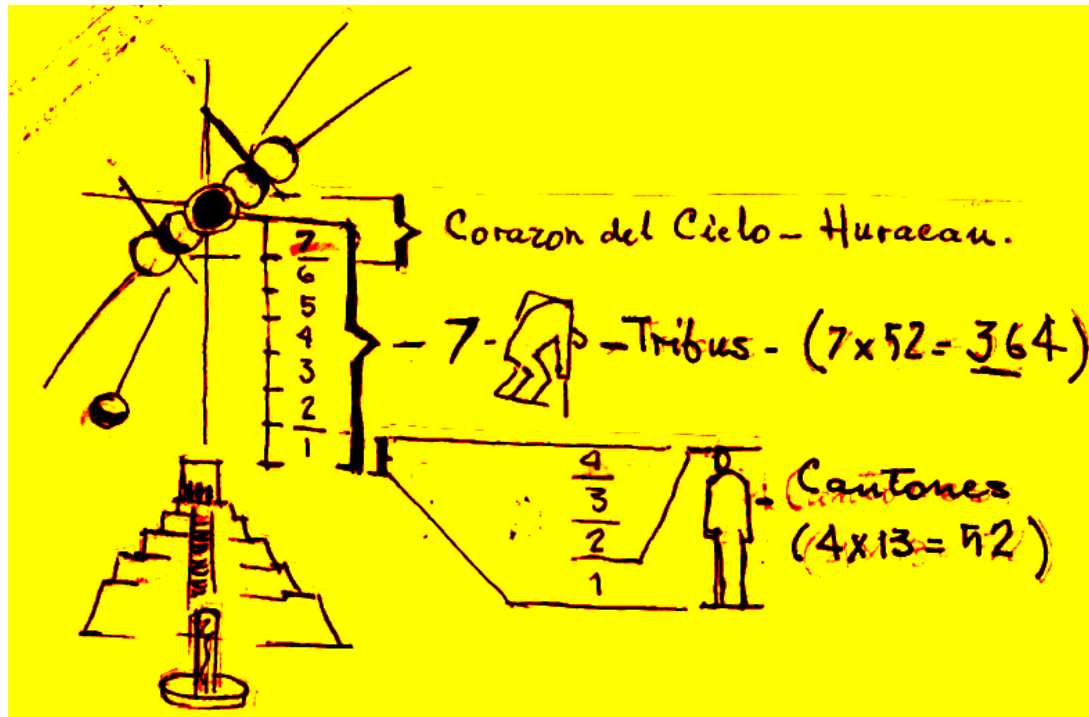 Corazon del Cielo - Huracan.
7
6
5
4
3
2
1
- 7 - - Tribus - (7x52=364)
4
3
2
1
- Cantones
(4x13=52)